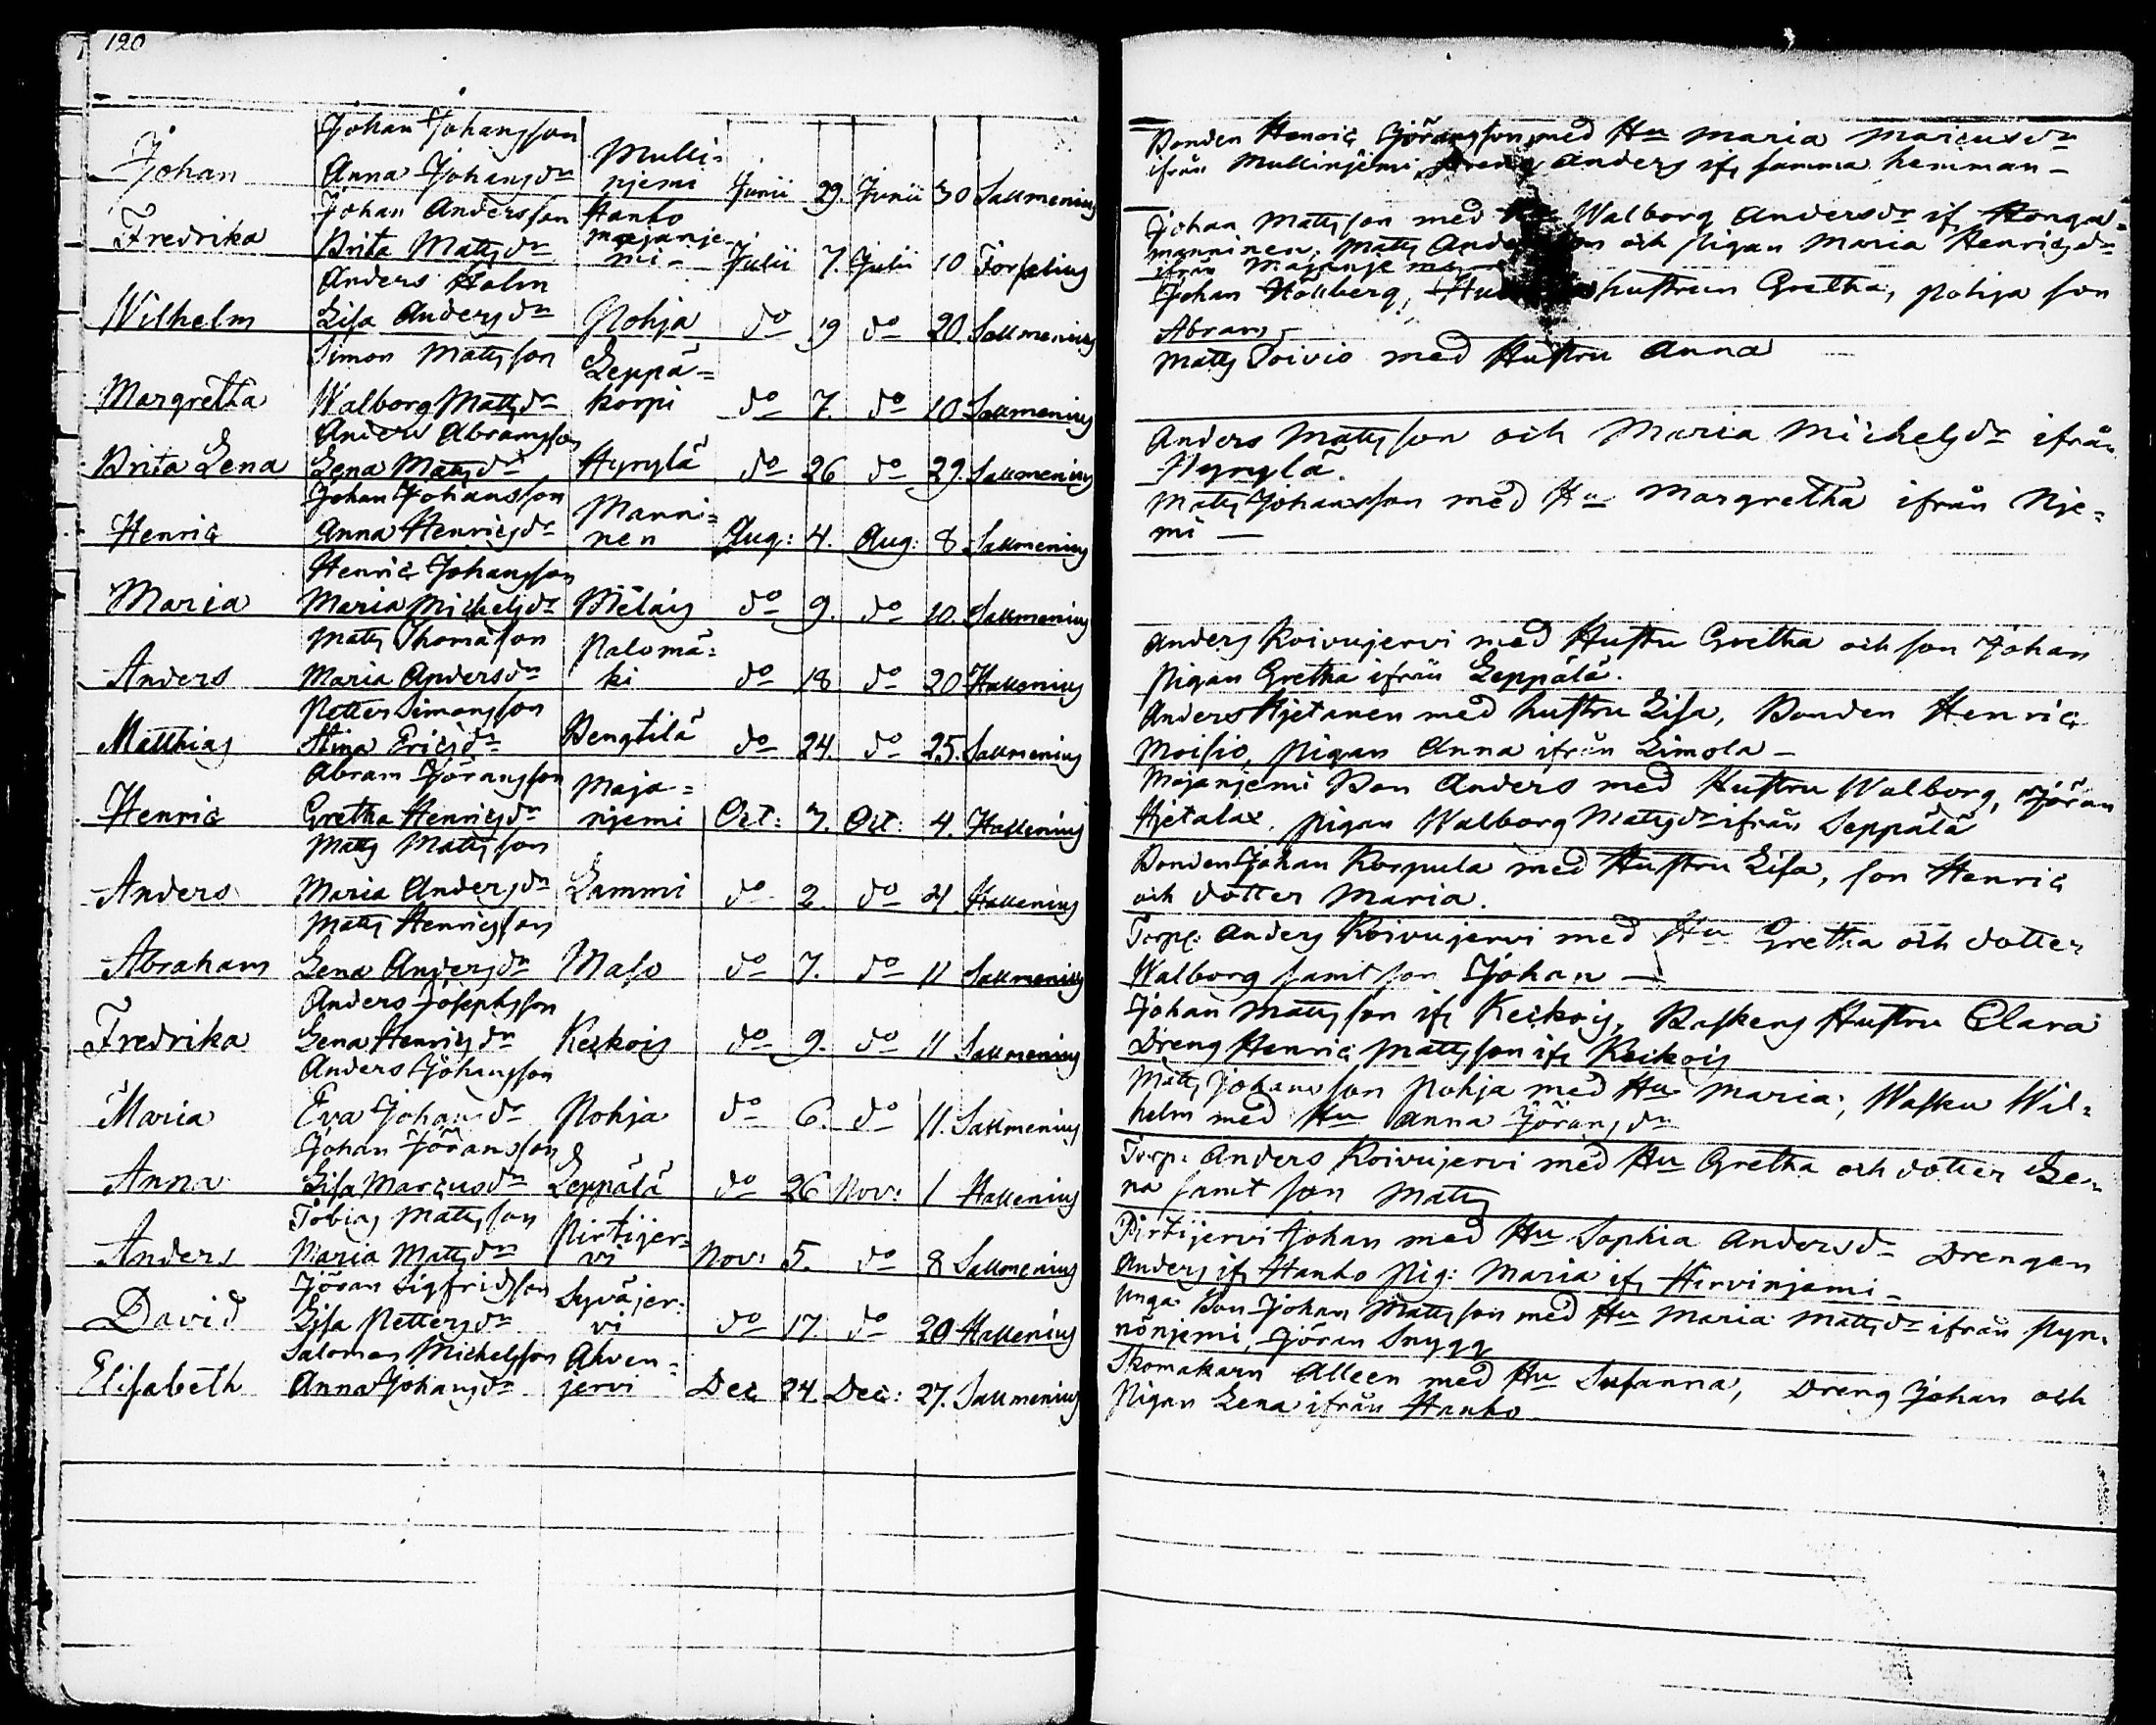 120
Johan Johansson
Johan Anna Johansdr Mullinjemi Junii 29. Junii 30 Sallmenius
Johan Andersson Hanho
Fredrika Brita Mattsdr majanjemi- Julii 7. Julii 10 Forselius
Anders Holm
Wilhelm Lisa Andersdr Pohja do 19 do 20 Sallmenius
Simon Mattsson Leppä=
Margretha Walborg Mattsdr korpi do 7. do 10 Sallmenius
Anders Abramsson
Brita Lena Lena Mattsdr Hyrylä do 26 do 29. Sallmenius
Johan Johansson Manni=
Henric Anna Henricsdr nen Aug: 4. Aug: 8 Sallmenius
Henric Johansson
Maria Maria Michelsdr do 9. do 10. Sallmenius
Matts Thomasson Palomä=
Anders Maria Andersdr ki do 18 do 20 Hallenius
Petter Simonsson
Matthias Stina Ericsdr Bengtilä do 24. do 25. Sallmenius
Abram Jöransson Maja=
Henric Gretha Henricsdr njemi Oct: 3. Oct: 4. Hallenius
Matts Mattsson
Anders Maria Andersdr Lammi do 2. do 4 Hallenius
Matts Henricsson
Abraham Lena Andersdr Maso do 7. do 11 Sallmenius
Anders Josephsson
Fredrika Lena Henricsdr Keckois do 9. do 11 Sallmenius
Anders Johansson
Maria Eva Johansdr Pohja do 6. do 11. Sallmenius
Johan Jöransson
Anna Lisa Marcusdr Leppälä do 26 Nov: 1 Hallenius
Tobias Mattsson Pirtijer=
Anders Maria Mattsdr vi Nov: 5. do 8 Sallmenius
Jöran Sigfridsson Syväjer=
David Lisa Pettersdr vi do 17. do 20 Hallenius
Salomon Michelsson Ahven=
Elisabeth Anna Johansdr jervi Dec 24. Dec: 27. Sallmenius
Bonden Henric Jöransson med Hu Maria Marcusdr
ifrån Mullinjemi, Dreng Anders ifr samma hemman -
Johan Mattsson med Walborg Andersdr if Honga=
manninen, Matts och Pigan Maria Henricsdr
ifrån Majanjemi
Johan Hökberg, hustrun Gretha, Pohja son
Abram -
Matts Toivio med Hustru Anna
Anders Mattsson och Maria Michelsdr ifrån
Hyrylä
Matts Johansson med Hu Margretha ifrån Nje=
mi -
Anders Koivujervi med Hustru Gretha och son Johan
Pigan Gretha ifrån Leppälä.
Anders Hjetanen med hustru Lisa, Bonden Henric
Moisio, Pigan Anna ifrån Limola -
Majanjemi Bon Anders med Hustru Walborg, Jöran
Hjetalax, Pigan Walborg Mattsdr ifrån Seppälä
Bonden Johan Korpula med Hustru Lisa, son Henric
och dotter Maria.
Torp: Anders Koivujervi med Hu Gretha och dotter
Walborg samt son Johan -
Johan Mattsson ifr Keckois, Baskens Hustru Clara
Dreng Henric Mattsson ifr Keckois
Matts Johansson Pohja med Hu Maria, Wasku Wil=
helm med Hu Anna Jöransdr
Torp: Anders Koivujervi med Hu Gretha och dotter Le=
na samt son Matts
Pirtijervi Johan med Hu Sophia Andersdr Drengen
Anders ifr Hanho Pig: Maria ifr Hirvinjemi -
unga Bon Johan Mattsson med Hu Maria Mattsdr ifrån Pyn=
nönjemi, Jöran Snygg
Skomakarn Alleen med Hu Susanna, Dreng Johan och
Pigan Lena ifrån Hanho